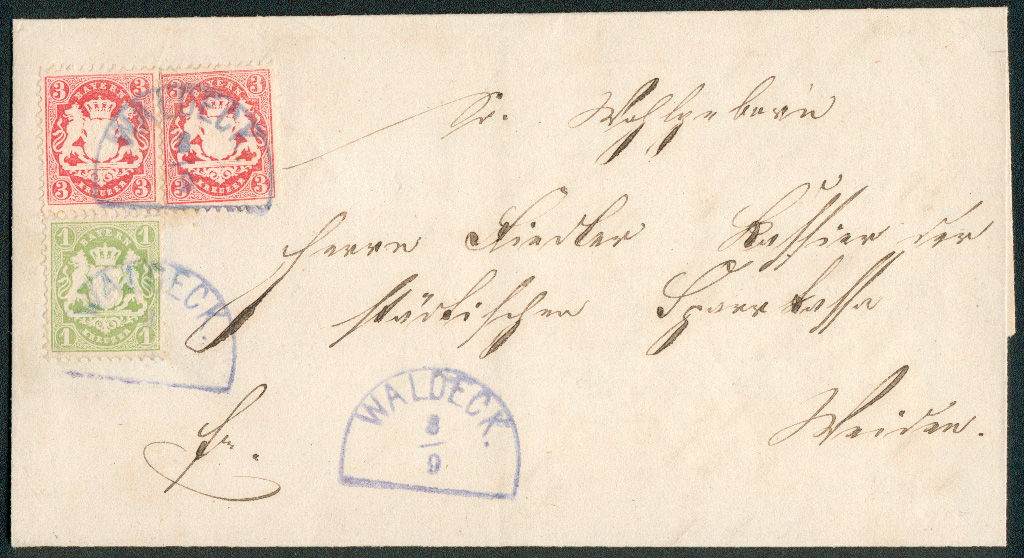 3 BAYERN 3
3 KREUZER 3
3 BAYERN 3
3 KREUZER 3
WALDECK.
1 BAYERN 1
1 KREUZER 1
WALDECK.
Sr. Wohlgeborn
Herrn Fiedler Kassier der
städtischen Sparkassa
Weiden.
fr.
WALDECK.
8
9